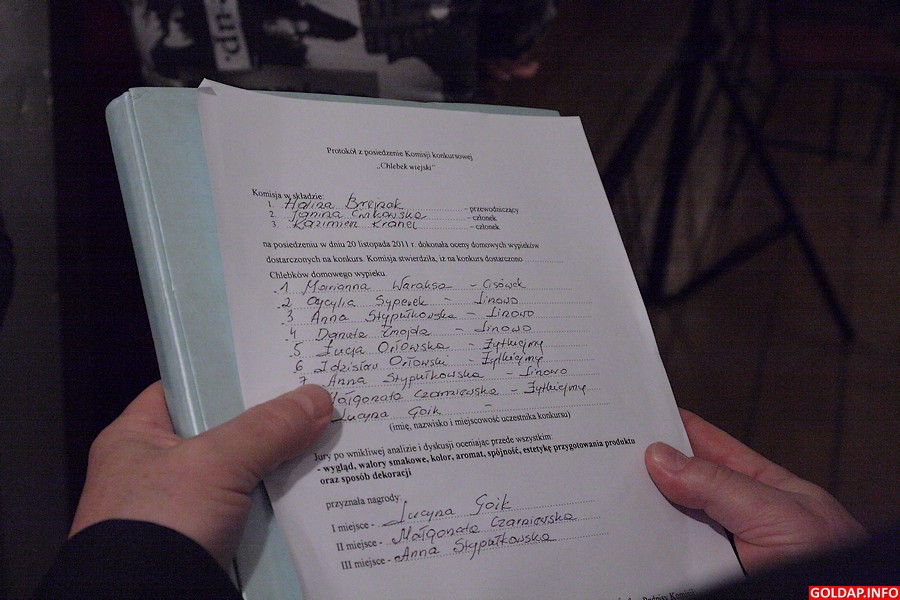 Protokół z posiedzenie Komisji konkursowej
„Chlebek wiejski"
Komisja w składzie:
1. Halina - przewodniczący
2. Janina - członek
3. Kazimierz - członek
na posiedzeniu w dniu 20 listopada 2011 r. dokonała oceny domowych wypieków
dostarczonych na konkurs. Komisja stwierdziła, iż na konkurs dostarczono
Chlebków domowego wypieku.
1 Marianna Waraksa - Cisówek
2 Cecylia Syperek - Linowo
3 Anna Stypułkowska - Linowo
4 Danuta Żmojda - Linowo
5 Łucja Orłowska - Żytkiejmy
6 Zdzisław Orłowski - Żytkiejmy
7 Anna Stypułkowska - Linowo
Małgorzata Czarniewska - Żytkiejmy
Lucyna Goik -
(imię, nazwisko i miejscowość uczestnika konkursu)
Jury po wnikliwej analizie i dyskusji oceniając przede wszystkim:
- wygląd, walory smakowe, kolor, aromat, spójność, estetykę przygotowania produktu
oraz sposób dekoracji
przyznała nagrody:
I miejsce - Lucyna Goik
II miejsce - Małgorzata Czarniewska
III miejsce - Anna Stypułkowska
Podpisy Komisji
GOLDAP.INFO